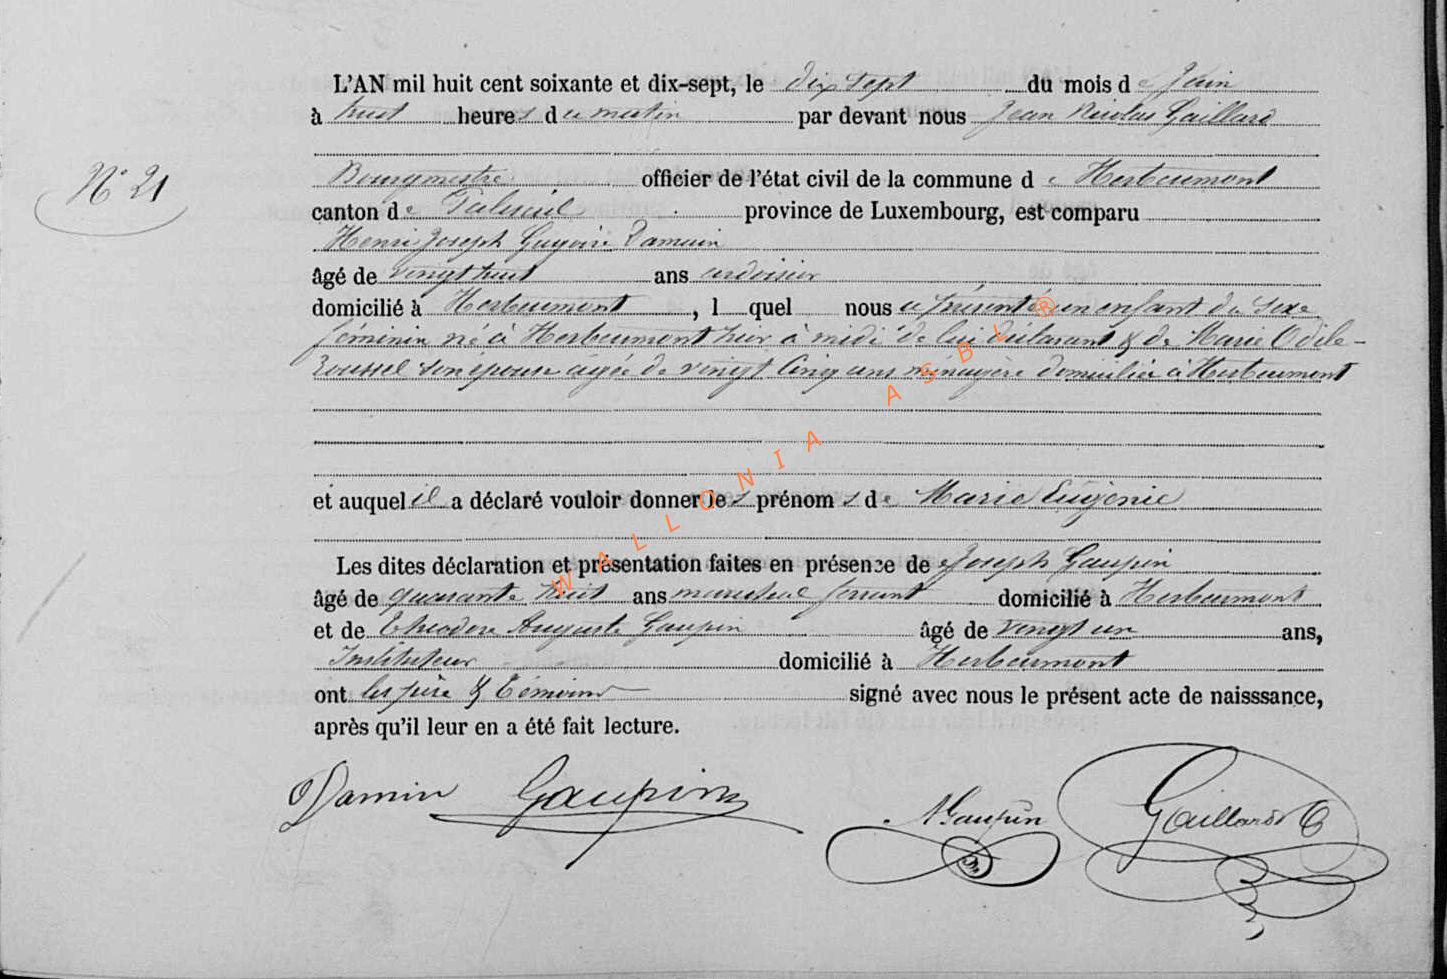 N° 21
L'AN mil huit cent soixante et dix-sept, le dix sept du mois de Juin
à huit heures du matin par devant nous Jean Nicolas Gaillard
Bourgmestre officier de l'état civil de la commune de Herbeumont
canton de Paliseul province de Luxembourg, est comparu
Henri Joseph Grégoire Damuin
âgé de vingt huit ans ardoisier
domicilié à Herbeumont, lequel nous a présenté un enfant du sexe
féminin né à Herbeumont hier à midi de lui déclarant & de Marie Odile
Roussel son épouse agée de vingt cinq ans ménagère domiciliée à Herbeumont
et auquel il a déclaré vouloir donner les prénoms de Marie Eugénie
Les dites déclaration et présentation faites en présence de Joseph Gaupin
âgé de quarante huit ans maréchal ferrant domicilié à Herbeumont
et de Théodore Auguste Gaupin âgé de vingt un ans,
Instituteur domicilié à Herbeumont
ont les père & témoins signé avec nous le présent acte de naisssance,
après qu'il leur en a été fait lecture.
Damin Gaupin A Gaupin Gaillard
WALLONIA ASBL ®